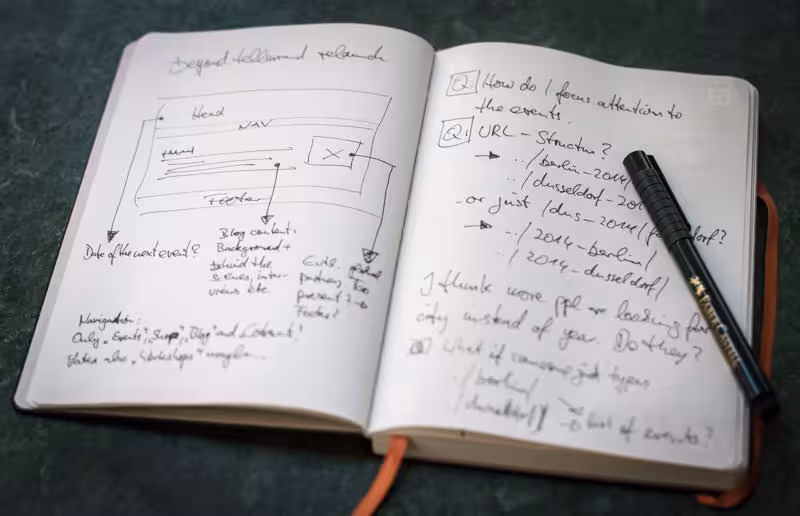 beyond tellerrand relaunch
Head
NAV
Footer
Date of the next event?
Blog content:
Background +
behind the
scenes, inter-
views etc.
Evtl. global
partners, too
present? →
Footer?
Navigation:
Only "Events", "Shop", "Blog" and Contact?
later also "Workshops" maybe.
Q: How do I focus attention to
the events.
Q: URL-Structur?
→ ../berlin-2014/
/dusseldorf-20
- or just /dus-2014/ dorf?
→ ../2014-berlin/
/2014-dusseldorf/
I think more ppl are looking for
city instead of year. Do they?
Q: What if someone just types
./berlin/
/dusseldorf/ → list of events?